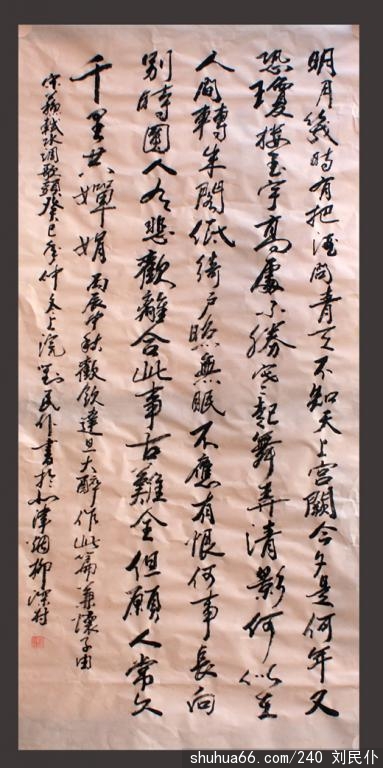 明月幾時有把酒問青天不知天上宮闕今夕是何年又
恐瓊樓玉宇高處不勝寒起舞弄清影何似在
人間轉朱閣低綺戶照無眠不應有恨何事長向
別時圓人有悲歡離合此事古難全但願人常久
千里共嬋娟 丙辰中秋歡飲達旦大醉作此篇兼懷子由
宋蘇軾水調歌頭癸巳年仲冬上浣劉民仆書於天津柳深村
shuhua66.com/240 刘民仆